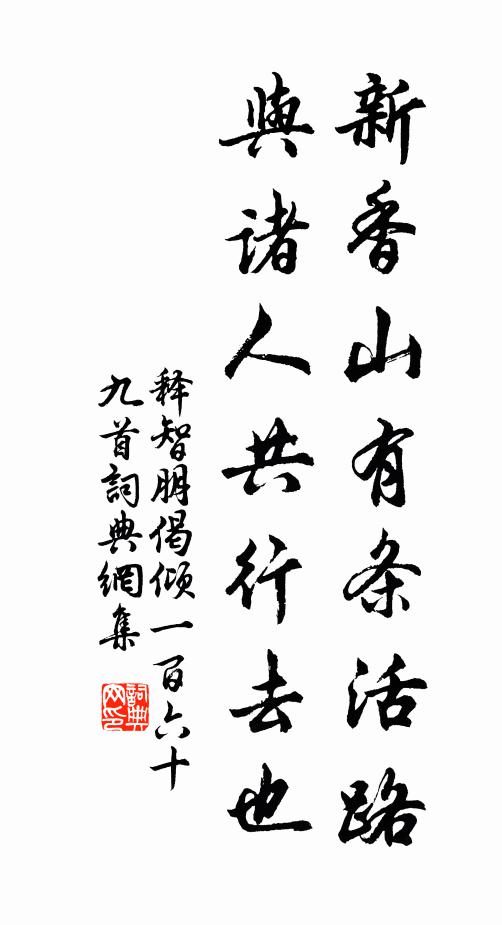 新香山有条活路
與诸人共行去也
释智朋偈倾一百六十
九首詞典網集
詞典
网印